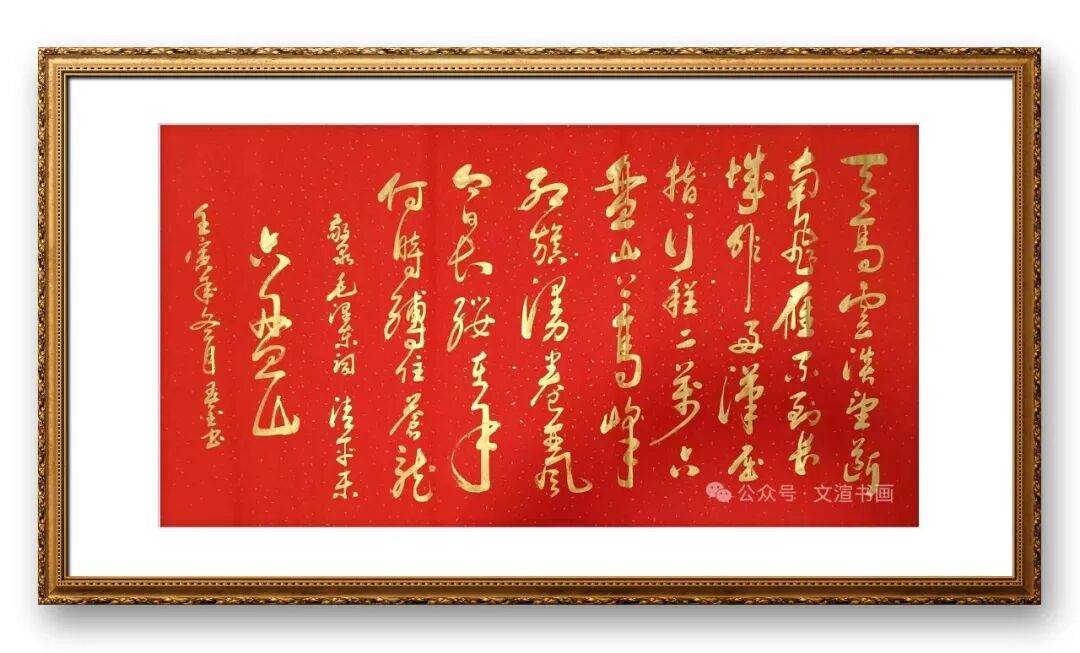 天高雲淡望斷
南飛雁不到長
城非好漢屈
指行程二萬六
盤山上高峰
紅旗漫卷西風
今日長纓在手
何時縛住蒼龍
毛澤東詞 清平樂
六盤山
壬寅年冬月 書
公众号 · 文渲书画